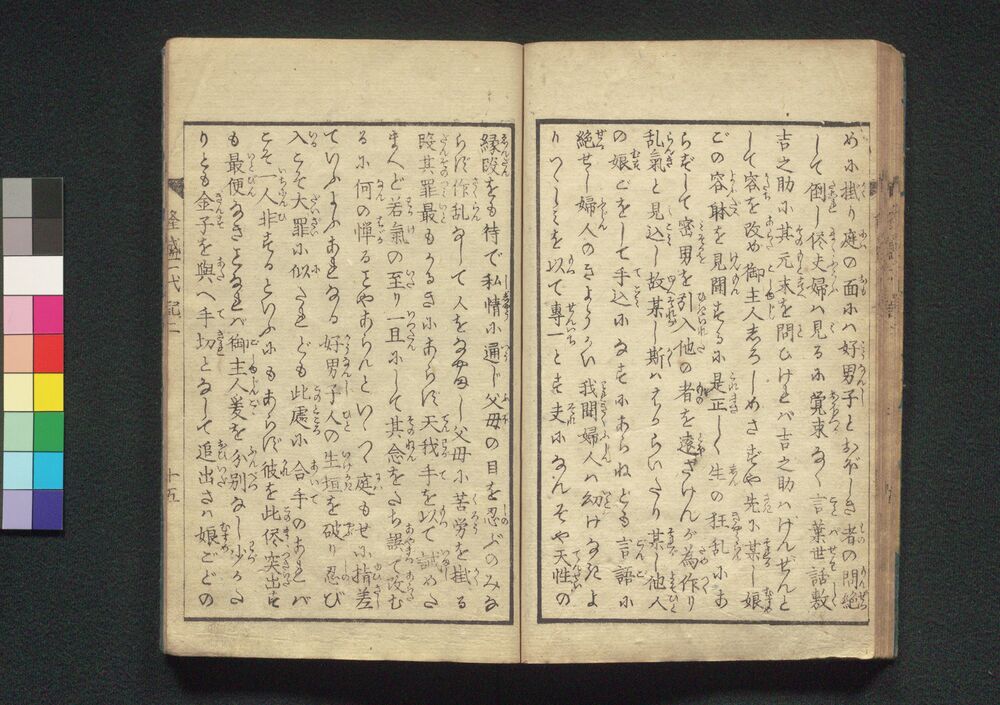 めに掛り庭の面にハ好男子とおぼしき者の悶絶
して倒し侭夫婦ハ見るに覚束なく言葉世話敷
吉之助に其元来を問ひけれバ吉之助ハけんぜんと
して容を改め御主人しろしめさずや先に某し娘
ごの容躰を見聞するに是正しく生の狂乱にあ
らずして密男を引入他の者を遠ざけんが為作り
乱氣と見込し故某し斯ハはからいたり某し他人
の娘ごをして手込になすにあらねども言語に
絶せし婦人のきようがい我聞婦人ハ幼けなきよ
りつゝしミを以て專一とす夫になんぞや天性の
縁談をも待で私情に通じ父母の目を忍ぶのみな
らず作乱なして人をなやまし父母に苦労を掛る
段其罪最もかるきにあらず天我手を以て誡めた
まへど若氣の至り一旦にして其念をたち誤て改む
るに何の憚ることやあらんといひつゝ庭もせに指差
ていふようあれなる好男子人の生垣を破り忍び
入こそ大罪に似たれども此處に合手のあれバ
こそ一人非するといふにもあらず彼を此侭突出すも
最便なきことなれバ御主人爰を分別なし少した
りとも金子を與へ手切となして追出さハ娘ごどの
隆盛一代記二
十五